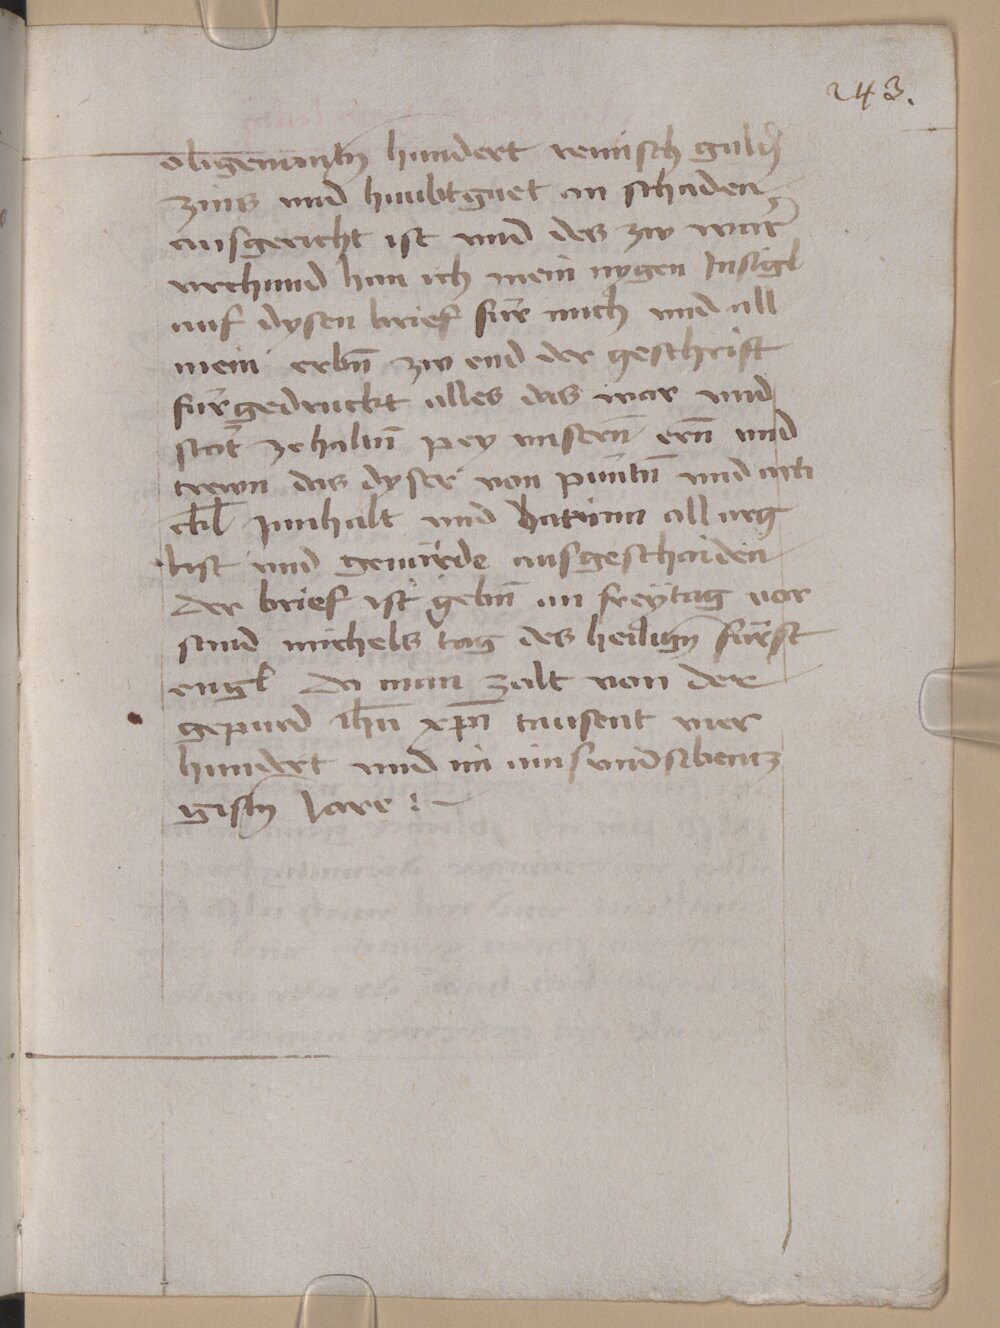 243.
obgenantn hundert reinisch guldn
zins und haubtguet an schaden
ausgericht ist und des zw warr
urchund han ich mein aygen Insigl
auf dysen brief für mich und all
mein erbn̄ zw end der geschrift
fürgedruckt alles das war und
stät ze haltn̄ pey unsern̄ ern̄ und
trewn das dyser von püntn̄ und arti
ckl Innhalt und darinn all arg
list und gevärde ausgeschaiden
Der brief ist gebn̄ an freytag vor
sand michels tag des heilign fürst
engl Da man zalt von der
gepurd ih̄u xp̄i tausent vier
hundert und im ainsundsibentz
gistn Jare :